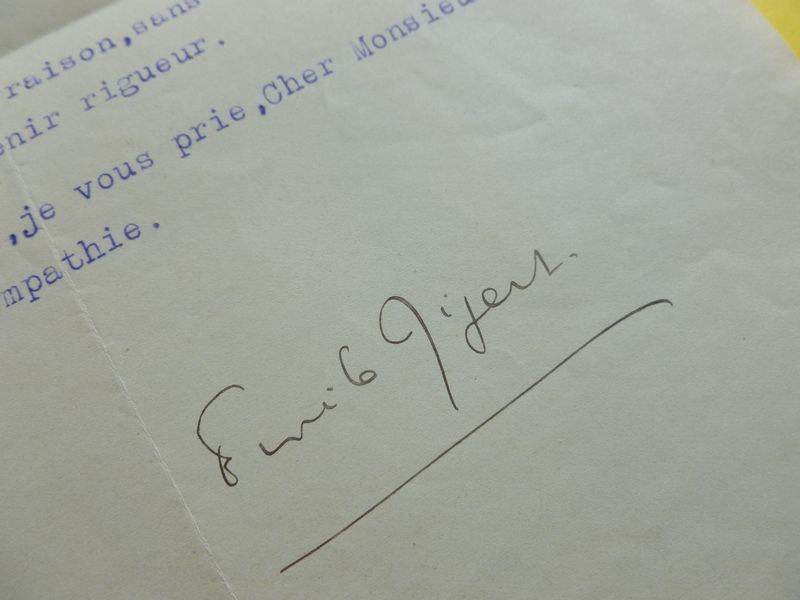 raison,sans
enir rigueur.
,je vous prie,Cher Monsieu
mpathie.
Emile Ripert.